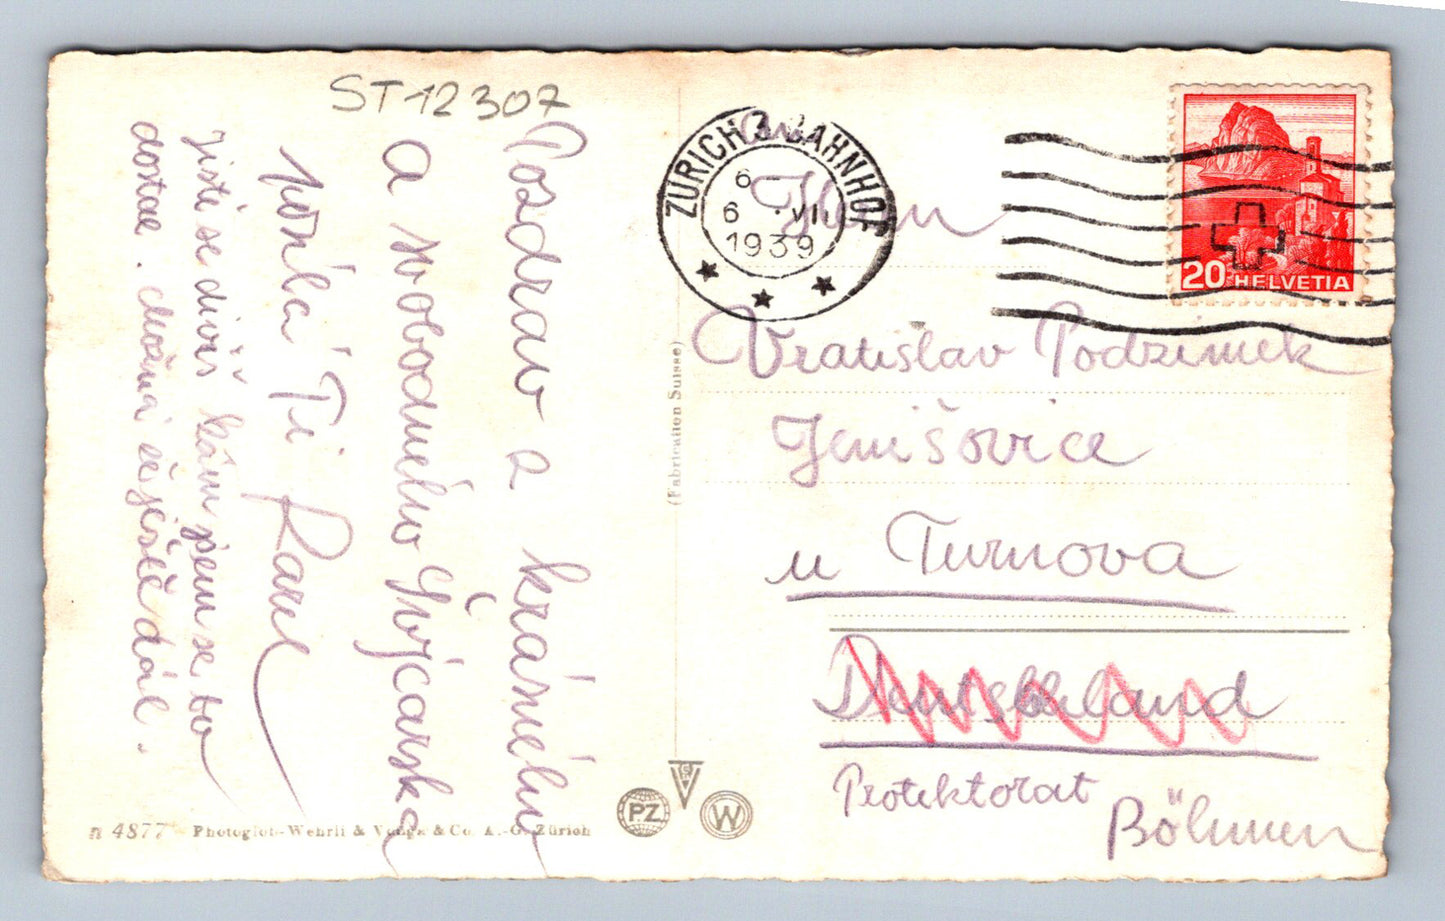 ST 12307
Pozdrav z krásného
a svobodného Švýcarska
posílá Ti Karel
jistě se divíš kám jsem se to
dostal. Možná se ještě dál.
n 4877 - Photoglob-Wehrli & Vouga & Co. A.-G. Zürich
(Fabrication Suisse)
PZ
W
ZÜRICH 3 BAHNHOF
6
6 · VII
1939
20 HELVETIA
Vratislav Podzimek
Jenišovice
u Turnova
Deutschland
Protektorat
Böhmen